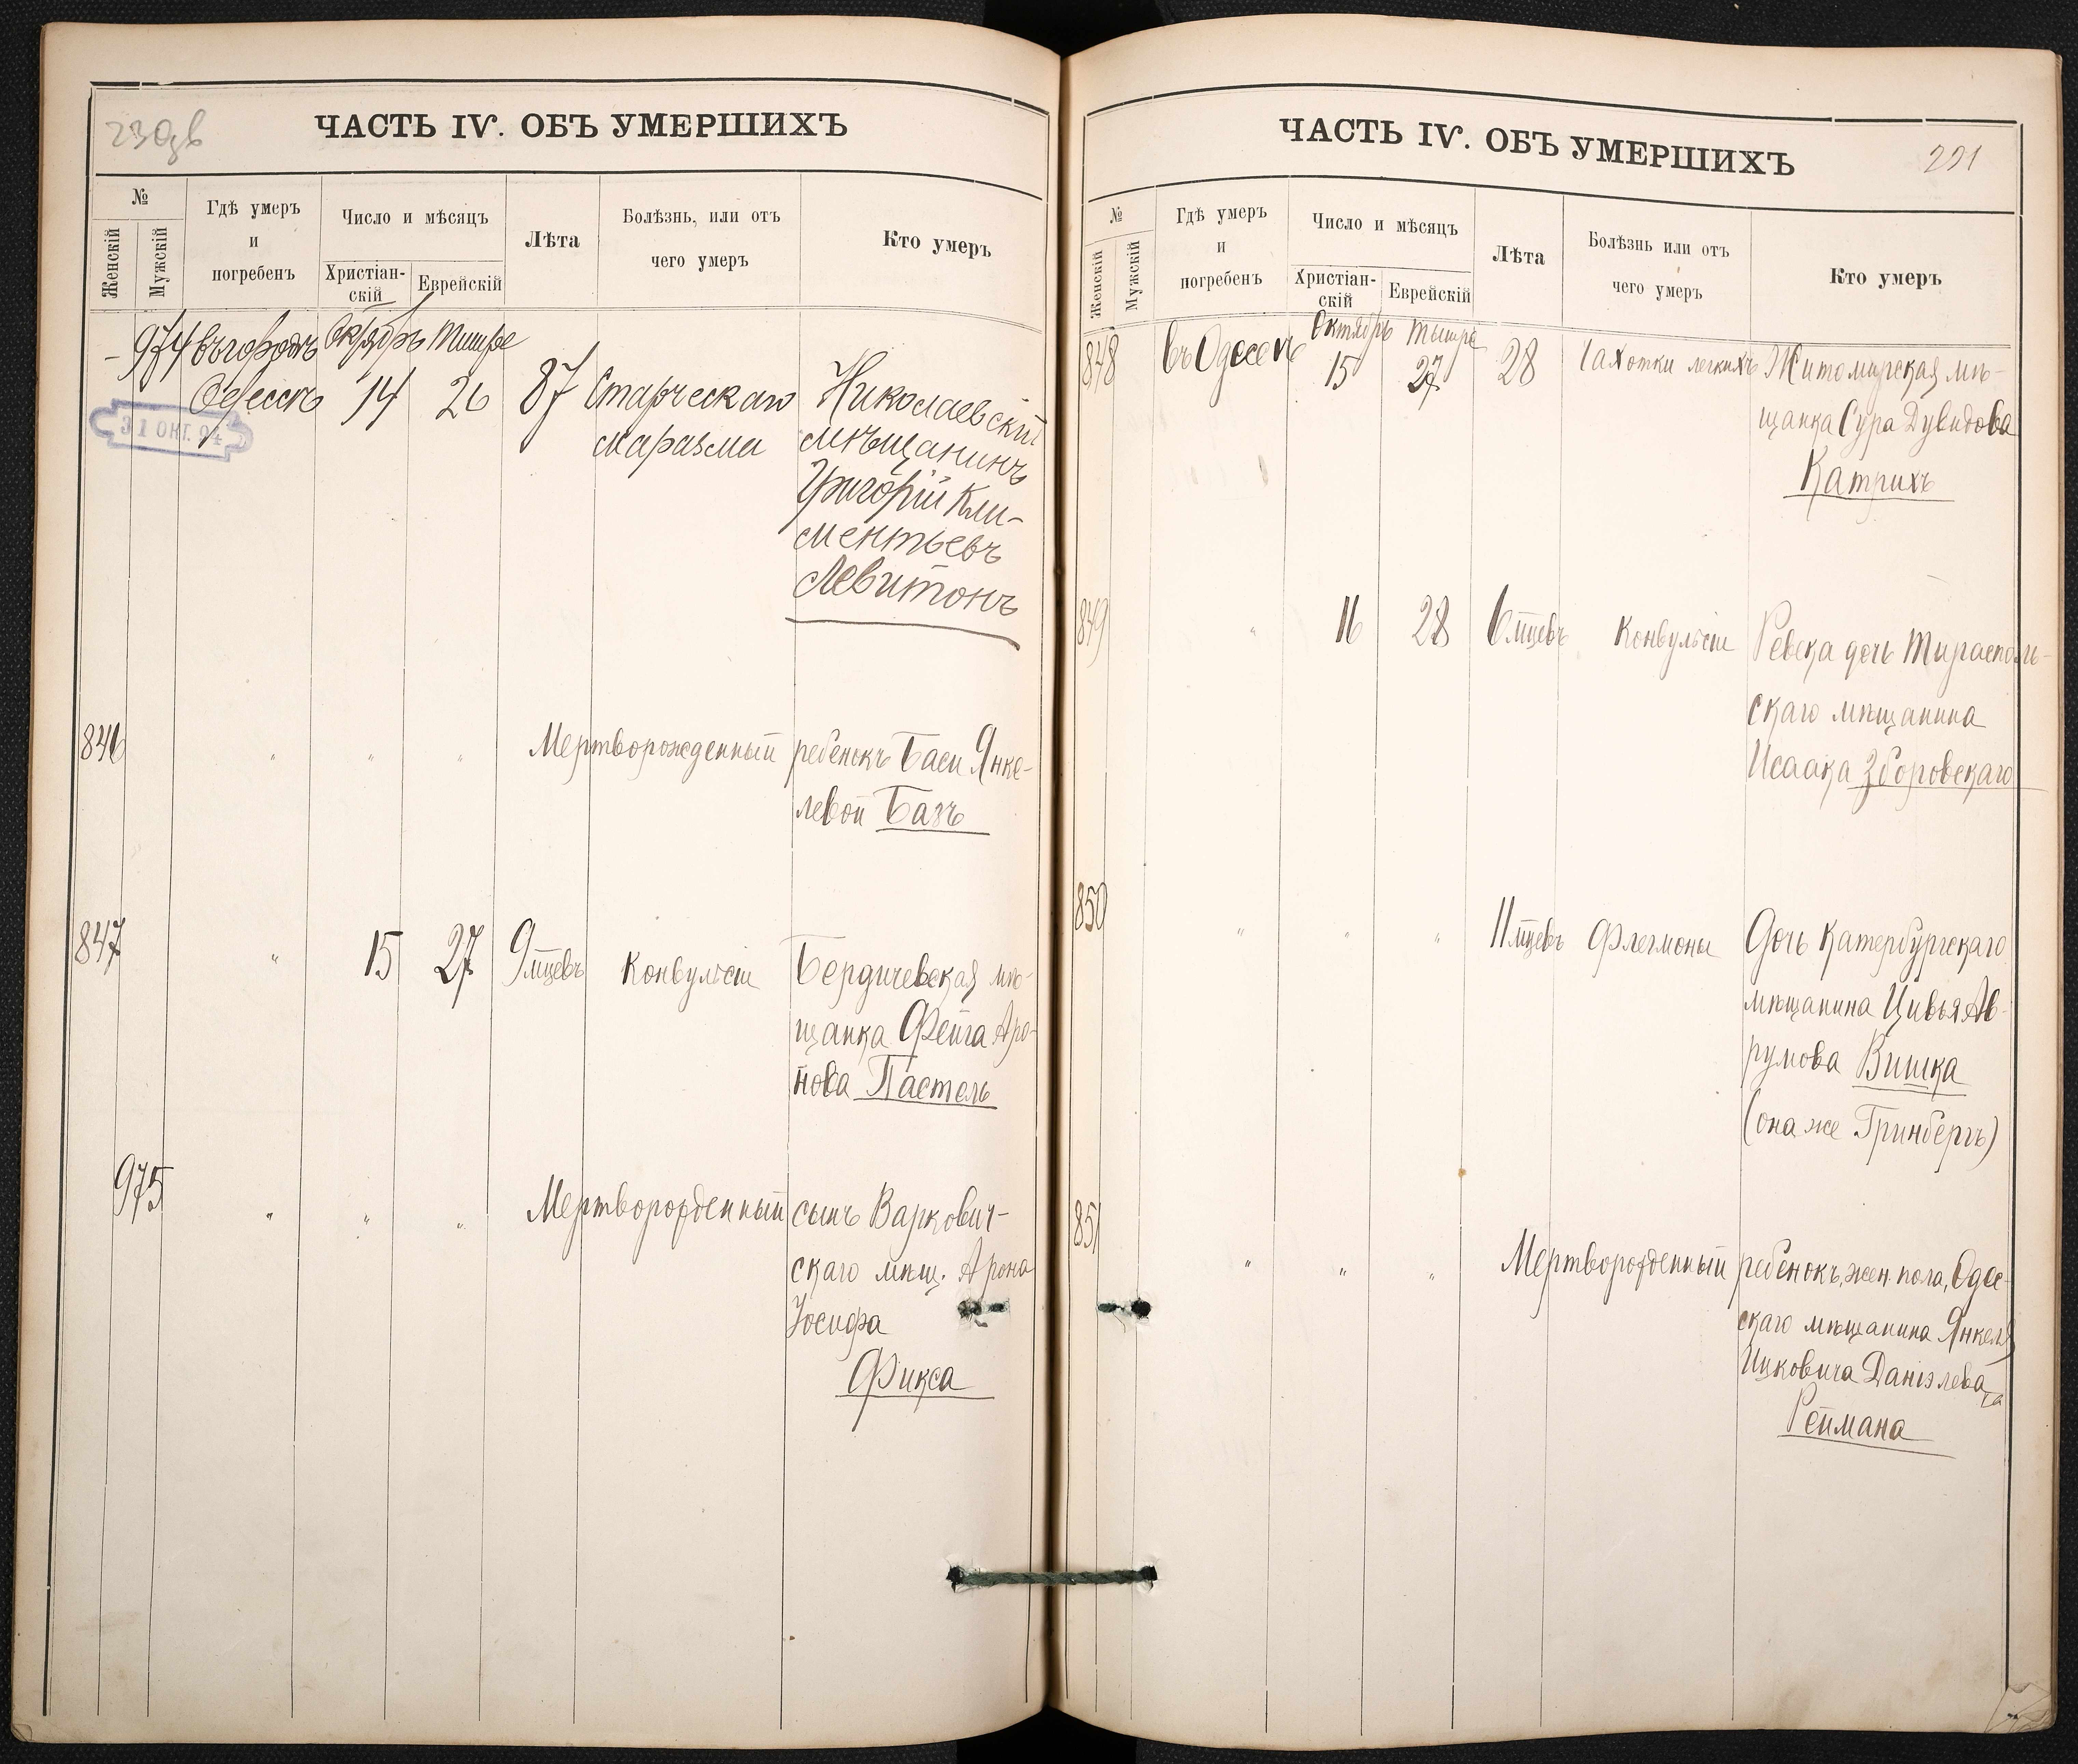 ЧАСТЬ IV. ОБЪ УМЕРШИХЪ
№
Женскій
Мужскій
Гдѣ умеръ
и
погребенъ
Число и мѣсяцъ
Христіан-
скій
Еврейскій
Лѣта
Болѣзнь, или отъ
чего умеръ
Кто умеръ
974 въ городѣ Октябрь Тишре
Одессѣ 14 26 87 Старческаго Николаевскій
31 ОКТ. 94
маразма мѣщанинъ
Григорій Кли-
ментьевъ
Левитонъ
846 " " " Мертворожденный ребенокъ Баси Янке-
левой Базъ
847 " 15 27 9 мцевъ Конвульсіи Бердичевская мѣ-
щанка Фейга Аро-
нова Пастель
975 " " " Мертворожденный сынъ Варкович-
скаго мѣщ. Арона
Іосифа
Фикса
ЧАСТЬ IV. ОБЪ УМЕРШИХЪ
221
№
Женскій
Мужскій
Гдѣ умеръ
и
погребенъ
Число и мѣсяцъ
Христіан-
скій
Еврейскій
Лѣта
Болѣзнь или отъ
чего умеръ
Кто умеръ
Октябрь Тишре
848 въ Одессѣ 15 27 28 Чахотки легкихъ Житомирская мѣ-
щанка Сура Дувидова
Катрихъ
849 " 16 28 6 мцевъ Конвульсіи Ревека дочь Тирасполь-
скаго мѣщанина
Исаака Зборовскаго
850 " " " 11 мцевъ Флегмоны Дочь Катербургскаго
мѣщанина Цивья Ав-
румова Вишка
(она же Гринбергъ)
851 " " " Мертворожденный ребенокъ, жен. пола, Одес-
скаго мѣщанина Янкеля
Ицковича Даніэлева
Реймана